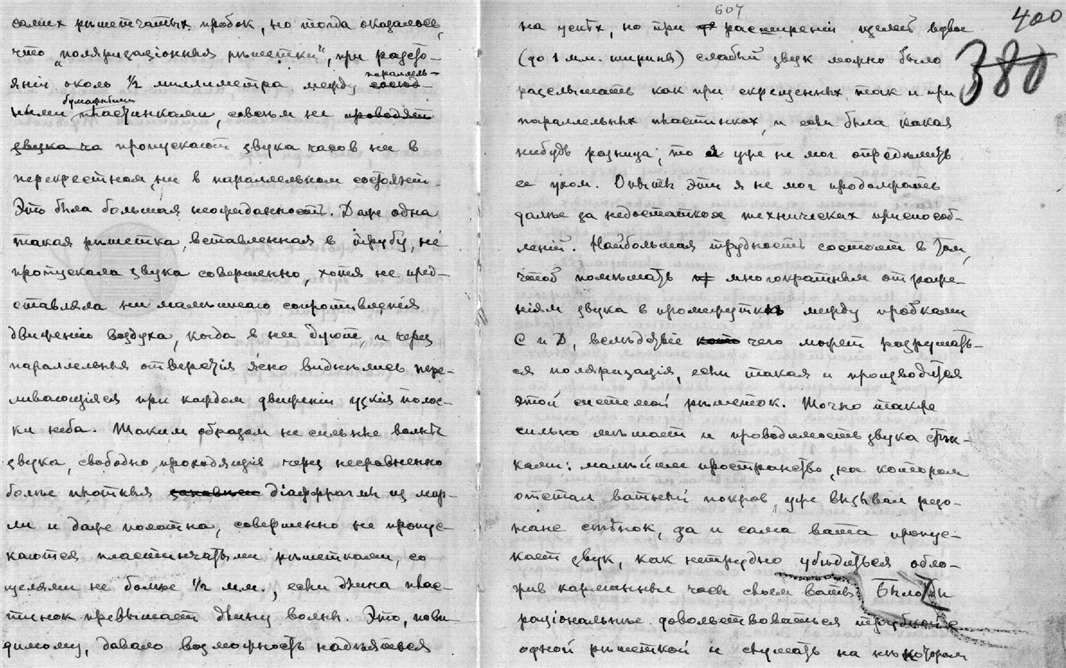 самих рѣшетчатых пробок, но тогда оказалось,
что "поляризаціонныя рѣшетки", при разсто-
яніи около 1/2 миллиметра между параллель-
ными бумажными пластинками, совсѣм не проводят
звука ча пропускают звука часов ни в
перекрестном, ни в параллельном состояніи.
Это была большая неожиданность. Даже одна
такая рѣшетка, вставленная в трубу, не
пропускала звука совершенно, хотя не пред-
ставляла ни малѣйшаго сопротивленія
движенію воздуха, когда в нее дуют, и через
параллельныя отверстія ясно виднѣлись пере-
ливающіяся при каждом движеніи узкія полос-
ки неба. Таким образом не сильныя волны
звука, свободно проходящія через несравненно
болѣе плотныя діафрагмы из мар-
ли и даже полотна, совершенно не пропус-
каются пластинчатыми рѣшетками, со
щелями не болѣе 1/2 м.м., если длина плас-
тинок превышает длину волны. Это, пови-
димому, давало возможность надѣяться
607
400
380
на успѣх, но при расширеніи щелей вдвое
(до 1 мм. ширины) слабый звук можно было
разслышать как при скрещенных, так и при
параллельных пластинках, и если была какая
нибудь разница, то я уже не мог опредѣлить
ее ухом. Опыты эти я не мог продолжать
далѣе за недостатком технических приспособ-
леній. Наибольшая трудность состоит в том,
чтоб помѣшать многократным отраже-
ніям звука в промежутках между пробками
C и D, вслѣдствіе чего может разрушать-
ся поляризація, если такая и производится
этой системой рѣшеток. Точно также
сильно мѣшает и проводимость звука стѣн-
ками: малѣйшее пространство, на котором
отстал ватный покров, уже вызывал резо-
нанс стѣнок, да и сама вата пропус-
кает звук, как нетрудно убѣдиться обло-
жив карманные часы слоем ваты. Было бы
раціональнѣе довольствоваться
одной рѣшеткой и слушать на нѣкотором